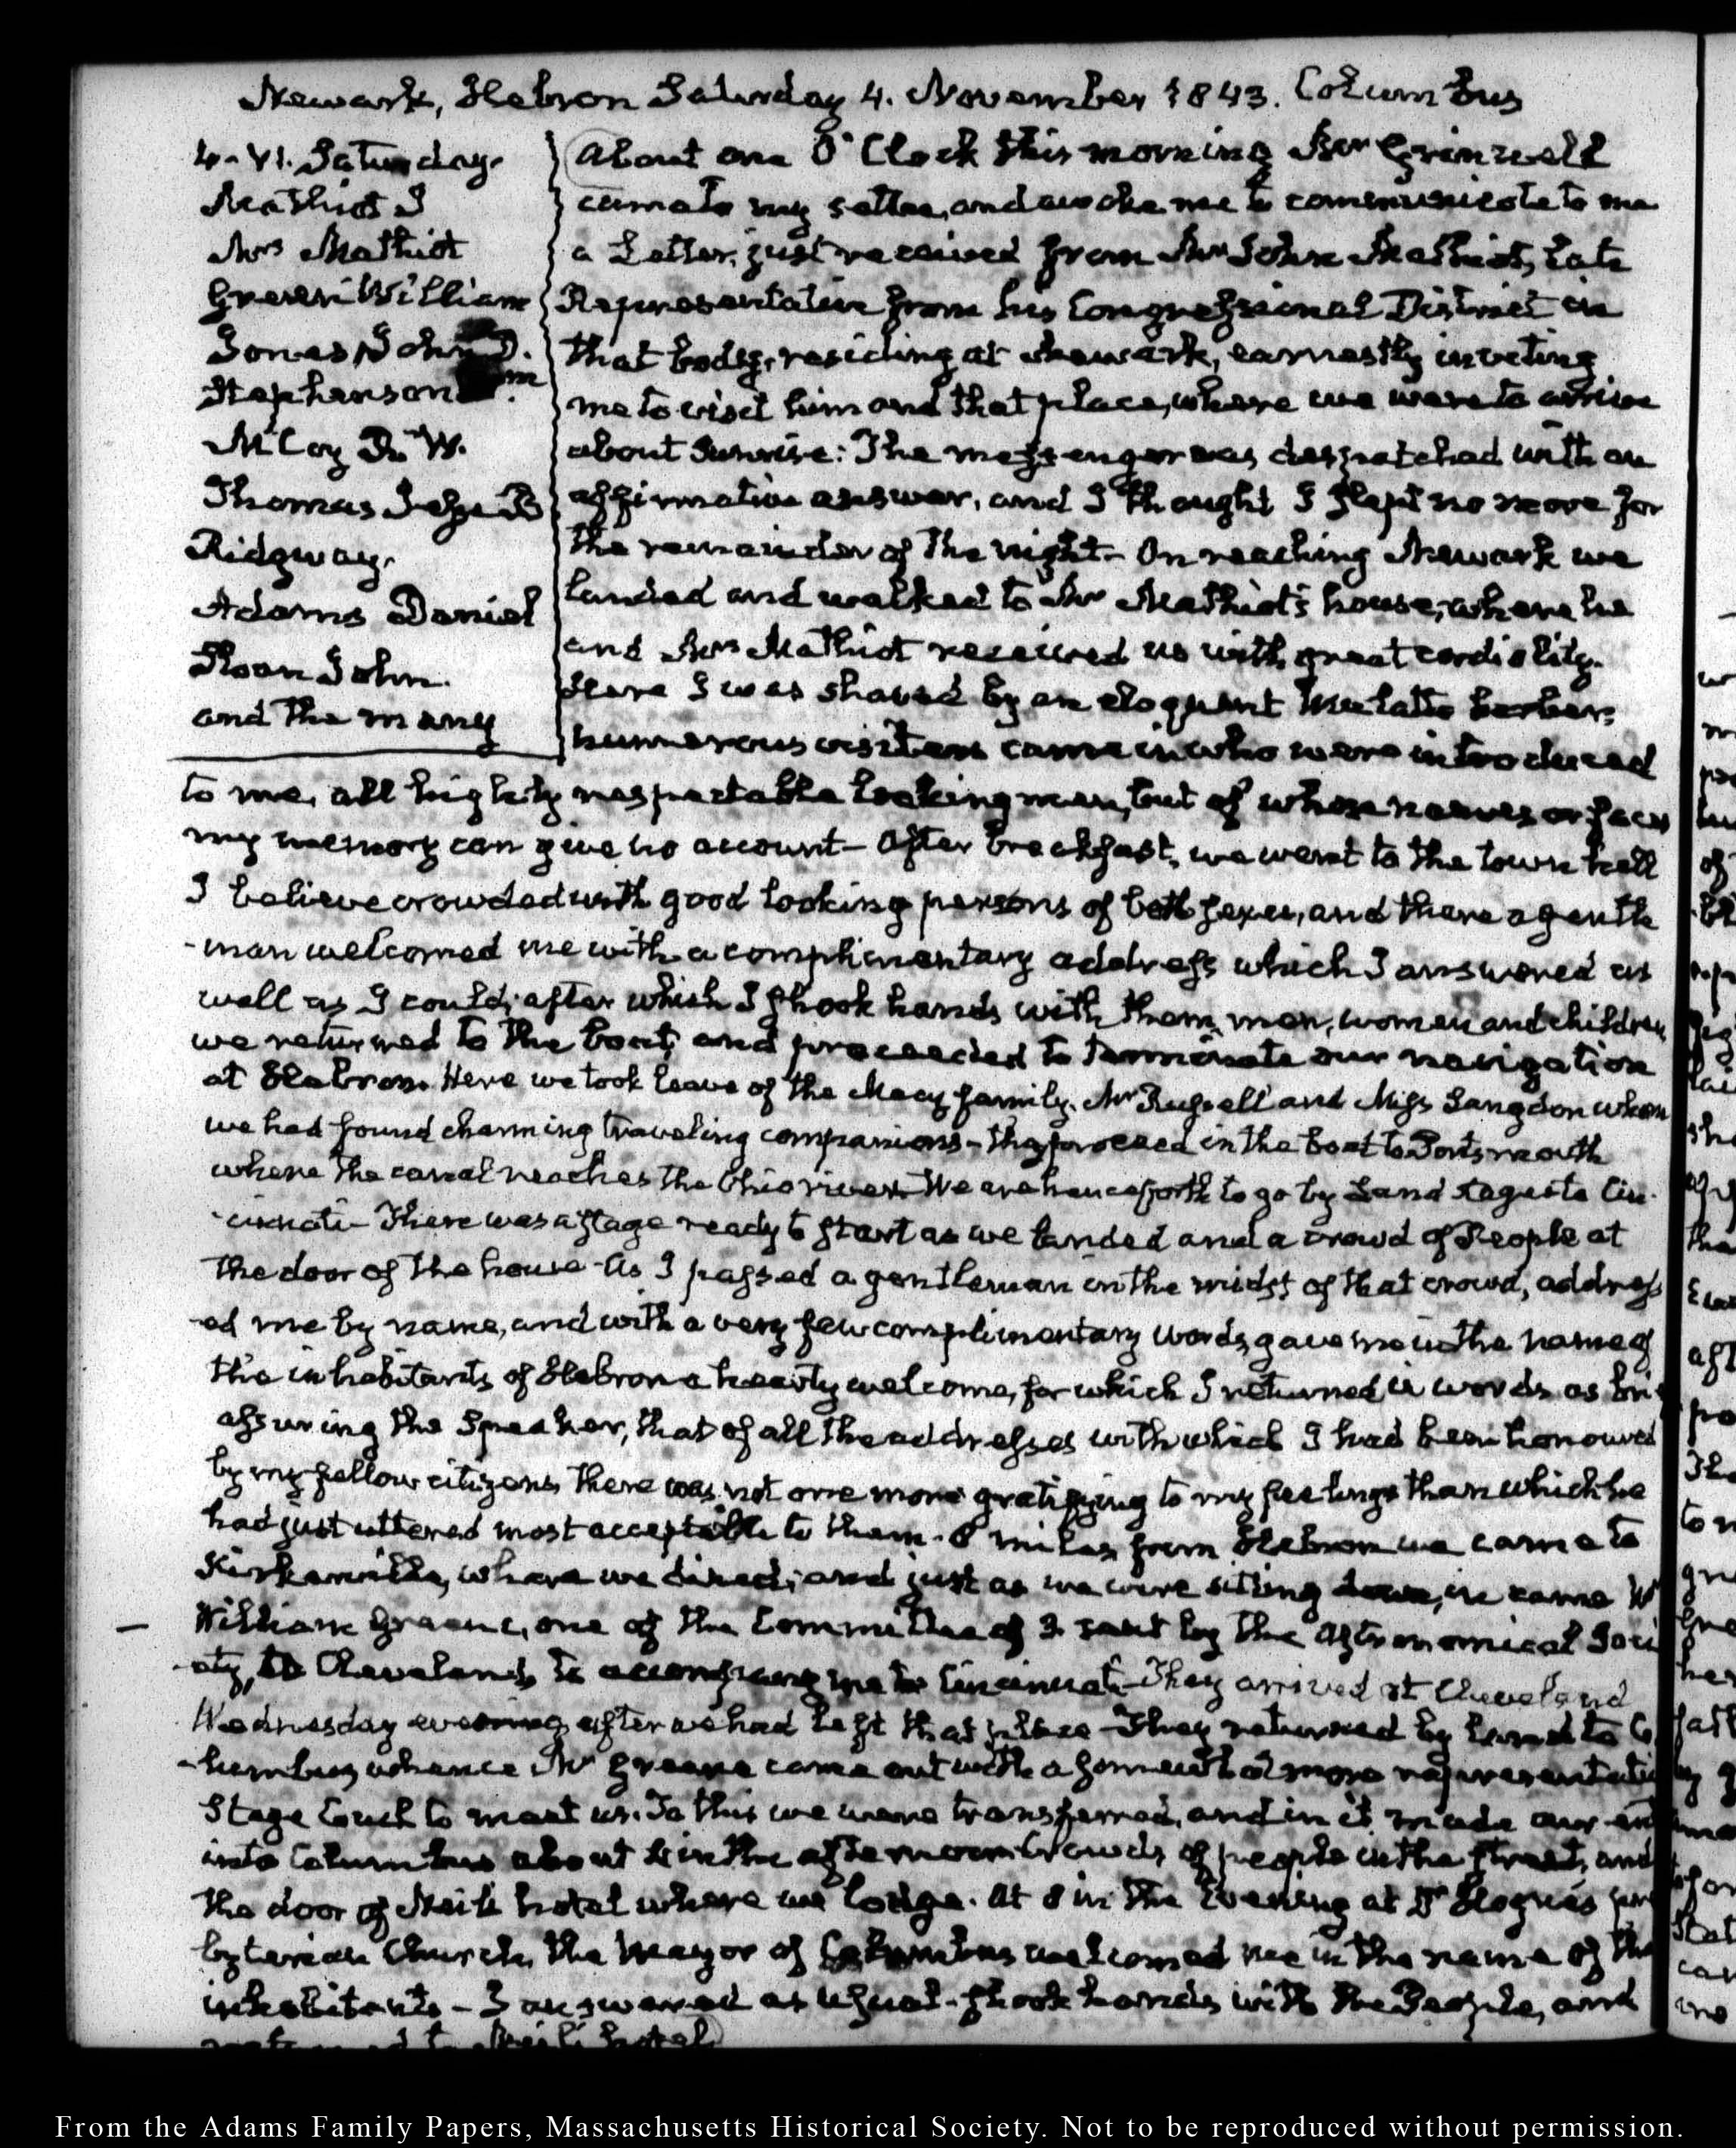 Newark, Hebron Saturday 4. November 1843. Columbus
4. VI. Saturday.
Mathiot J
Mrs Mathiot
Green William
Jones, John D.
Stephenson m
McCoy W.
Thomas John B
Ridgway.
Adams Daniel
Sloan John.
and the many
About one O'Clock this morning Mr Grinnell
came to my settee, and awoke me to communicate to me
a Letter, just received from Mr John Mathiot, late
Representative from his Congressional District in
that body, residing at Newark, earnestly inviting
me to visit him and that place, where we were to arrive
about Sunrise: The messenger was despatched with an
affirmative answer, and I thought I slept no more for
the remainder of the night. On reaching Newark we
landed and walked to Mr Mathiot's house, where he
and Mrs Mathiot received us with great cordiality.
Here I was shaved by an eloquent Mulatto barber;
numerous visitors came in who were introduced
to me, all highly respectable looking men, but of whose names or faces
my memory can give no account— After breakfast, we went to the town hall
I believe crowded with good looking persons of both sexes, and there a gentle
-man welcomed me with a complimentary address which I answered as
well as I could; after which I shook hands with them, men, women and children
we returned to the boat, and proceeded to terminate our navigation
at Hebron. Here we took leave of the Macy family, Mr Russell and Miss Langdon whom
we had found charming traveling companions— they proceed in the boat to Portsmouth
where the canal reaches the Ohio river. We are henceforth to go by Land Stages to Cin-
-cinnati— There was a stage ready to start as we landed and a crowd of People at
the door of the house. As I passed a gentleman in the midst of that crowd, address
-ed me by name, and with a very few complimentary words, gave me in the name of
the inhabitants of Hebron a hearty welcome, for which I returned in words as bri
assuring the Speaker, that of all the addresses with which I had been honoured
by my fellow citizens, there was not one more gratifying to my feelings than which he
had just uttered most acceptable to them. 8 miles from Hebron we came to
Kirkersville, where we dined; and just as we were sitting down, in came
William Greene, one of the Committee of 3 sent by the Astronomical Soci
-ety, to Cleveland, to accompany me to Cincinnati— They arrived at Cleveland
Wednesday evening after we had left that place— They returned by land to Co
-lumbus whence Mr Greene came out with a somewhat more representati
Stage Coach to meet us. To this we were transferred, and in it made our ent
into Columbus about in the afternoon Crowds of people in the street, and
the door of Neil's hotel where we lodge. At 8 in the Evening at Dr Hoge's pres
byterian Church, the Mayor of Columbus welcomed me in the name of the
inhabitants— I answered as usual. shook hands with the People, and
returned to Neil's hotel
From the Adams Family Papers, Massachusetts Historical Society. Not to be reproduced without permission.